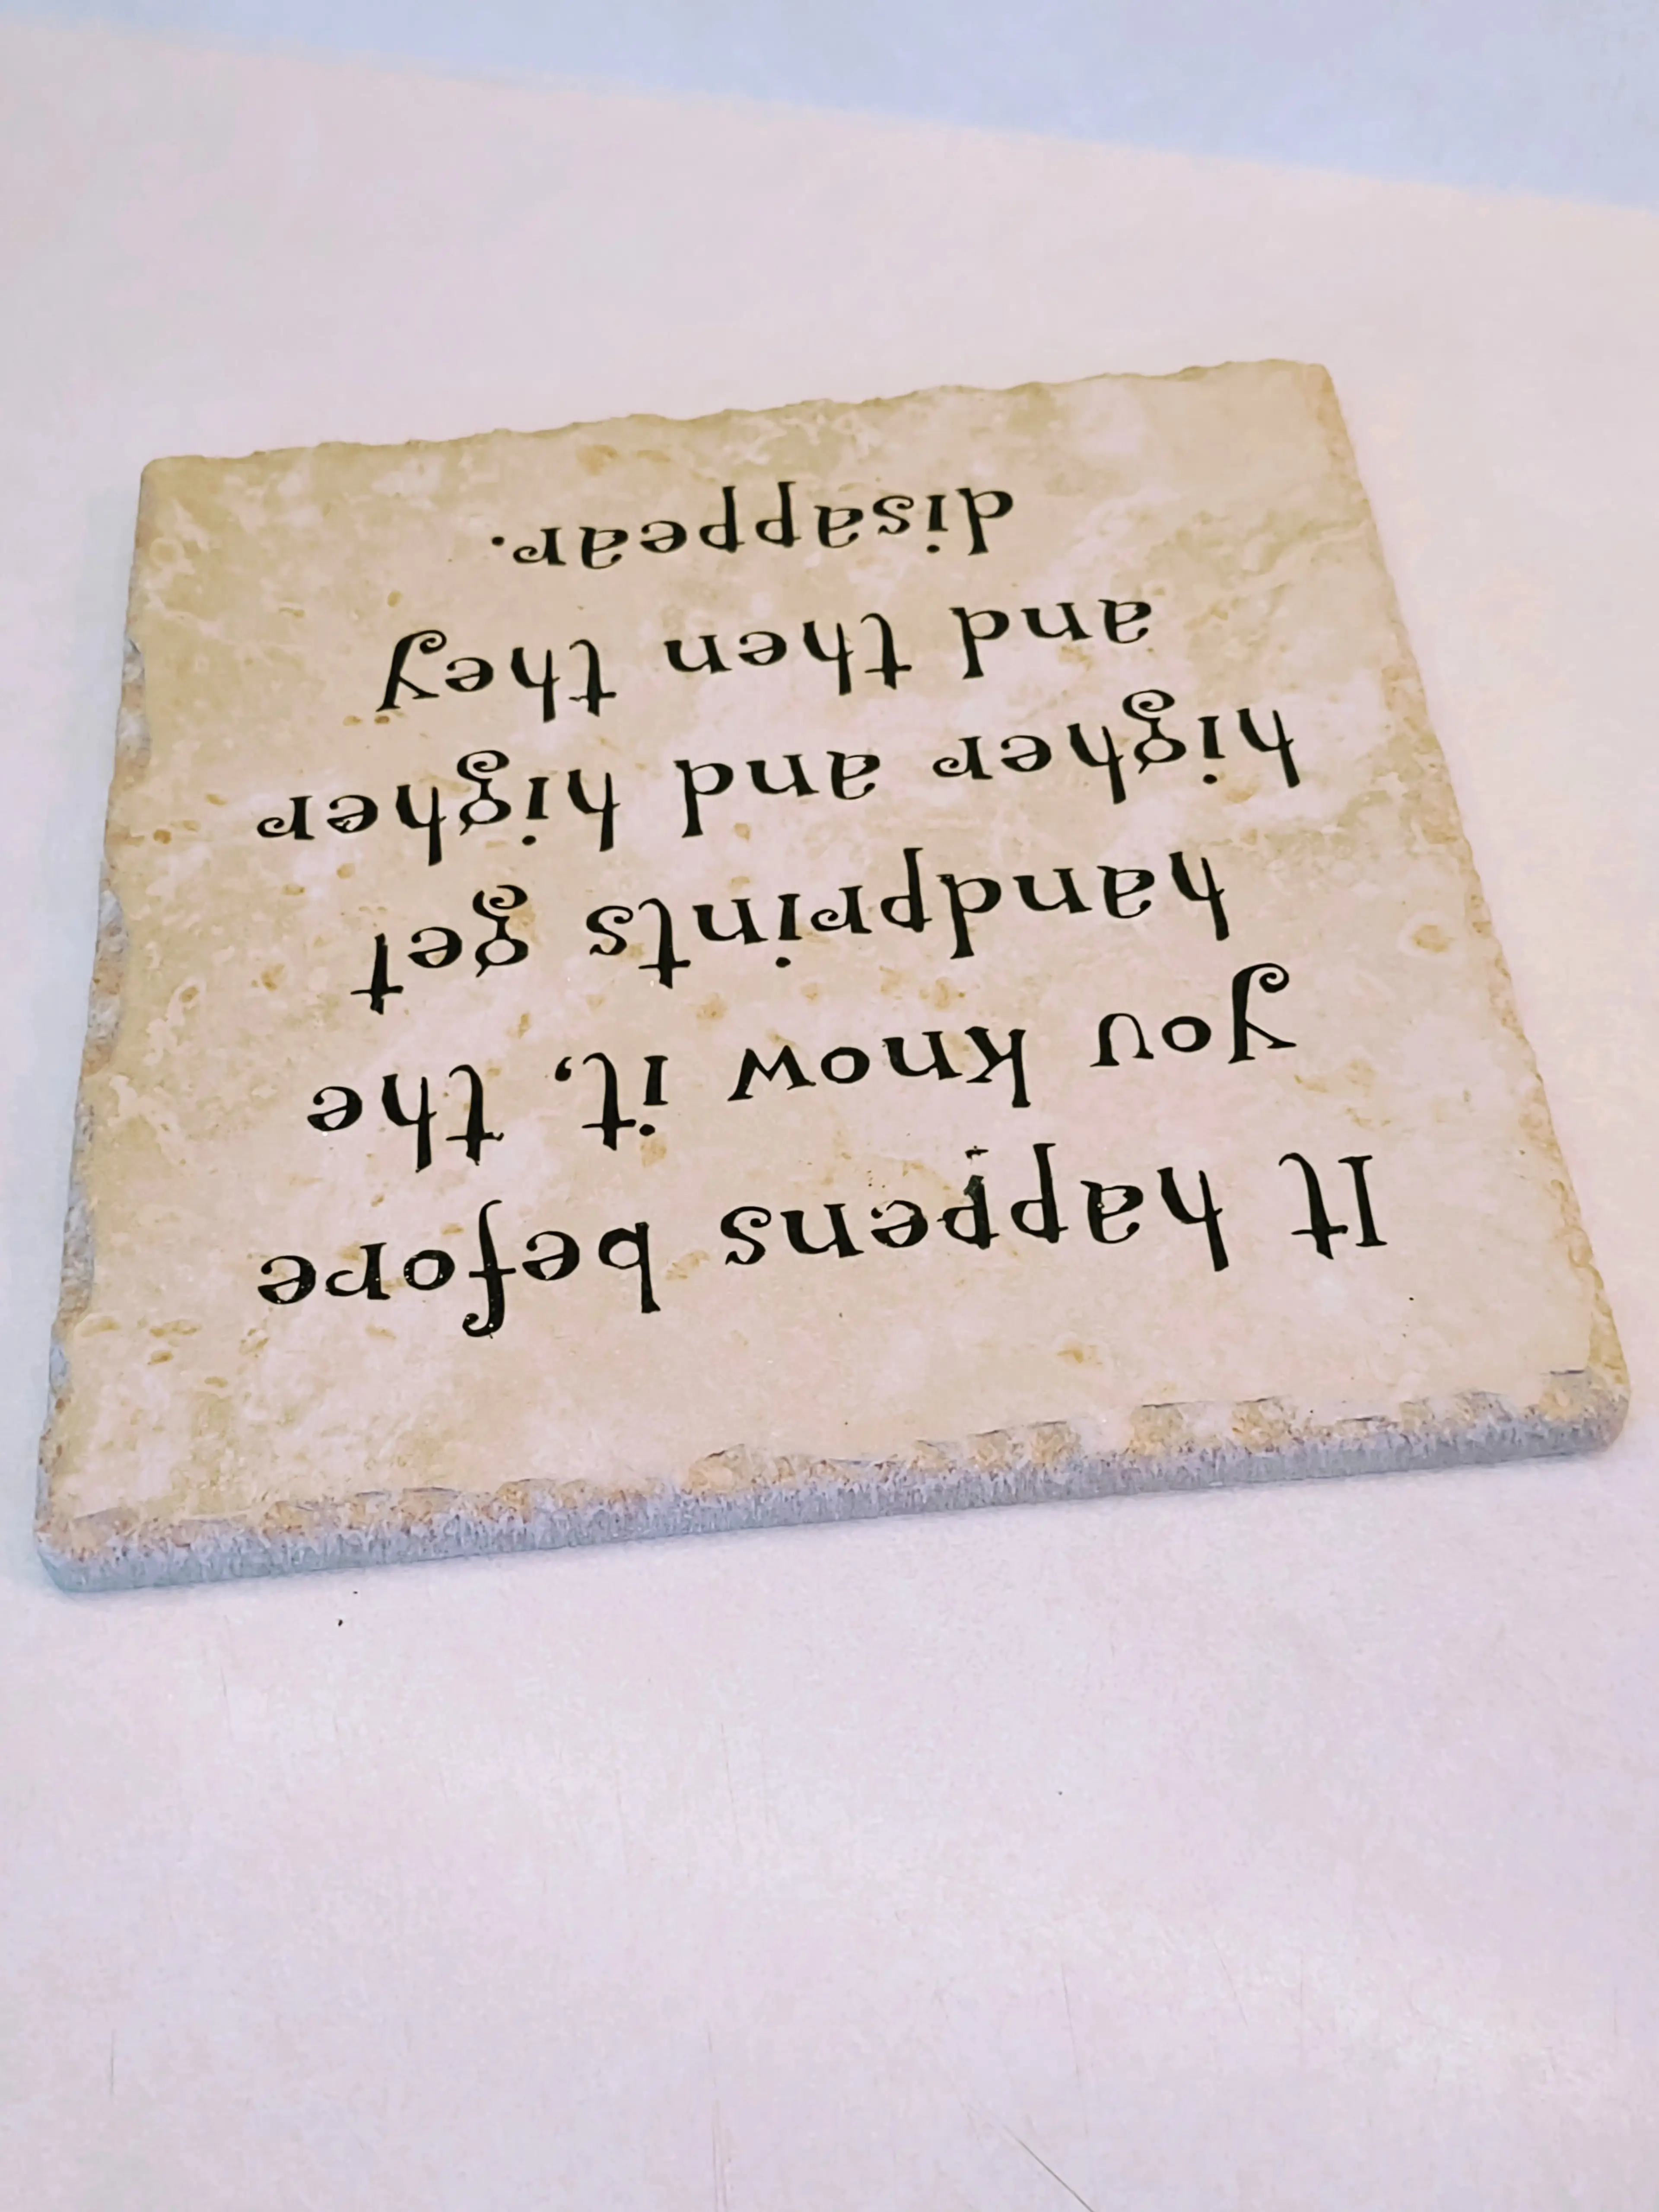 It happens before
you know it, the
handprints get
higher and higher
and then they
disappear.